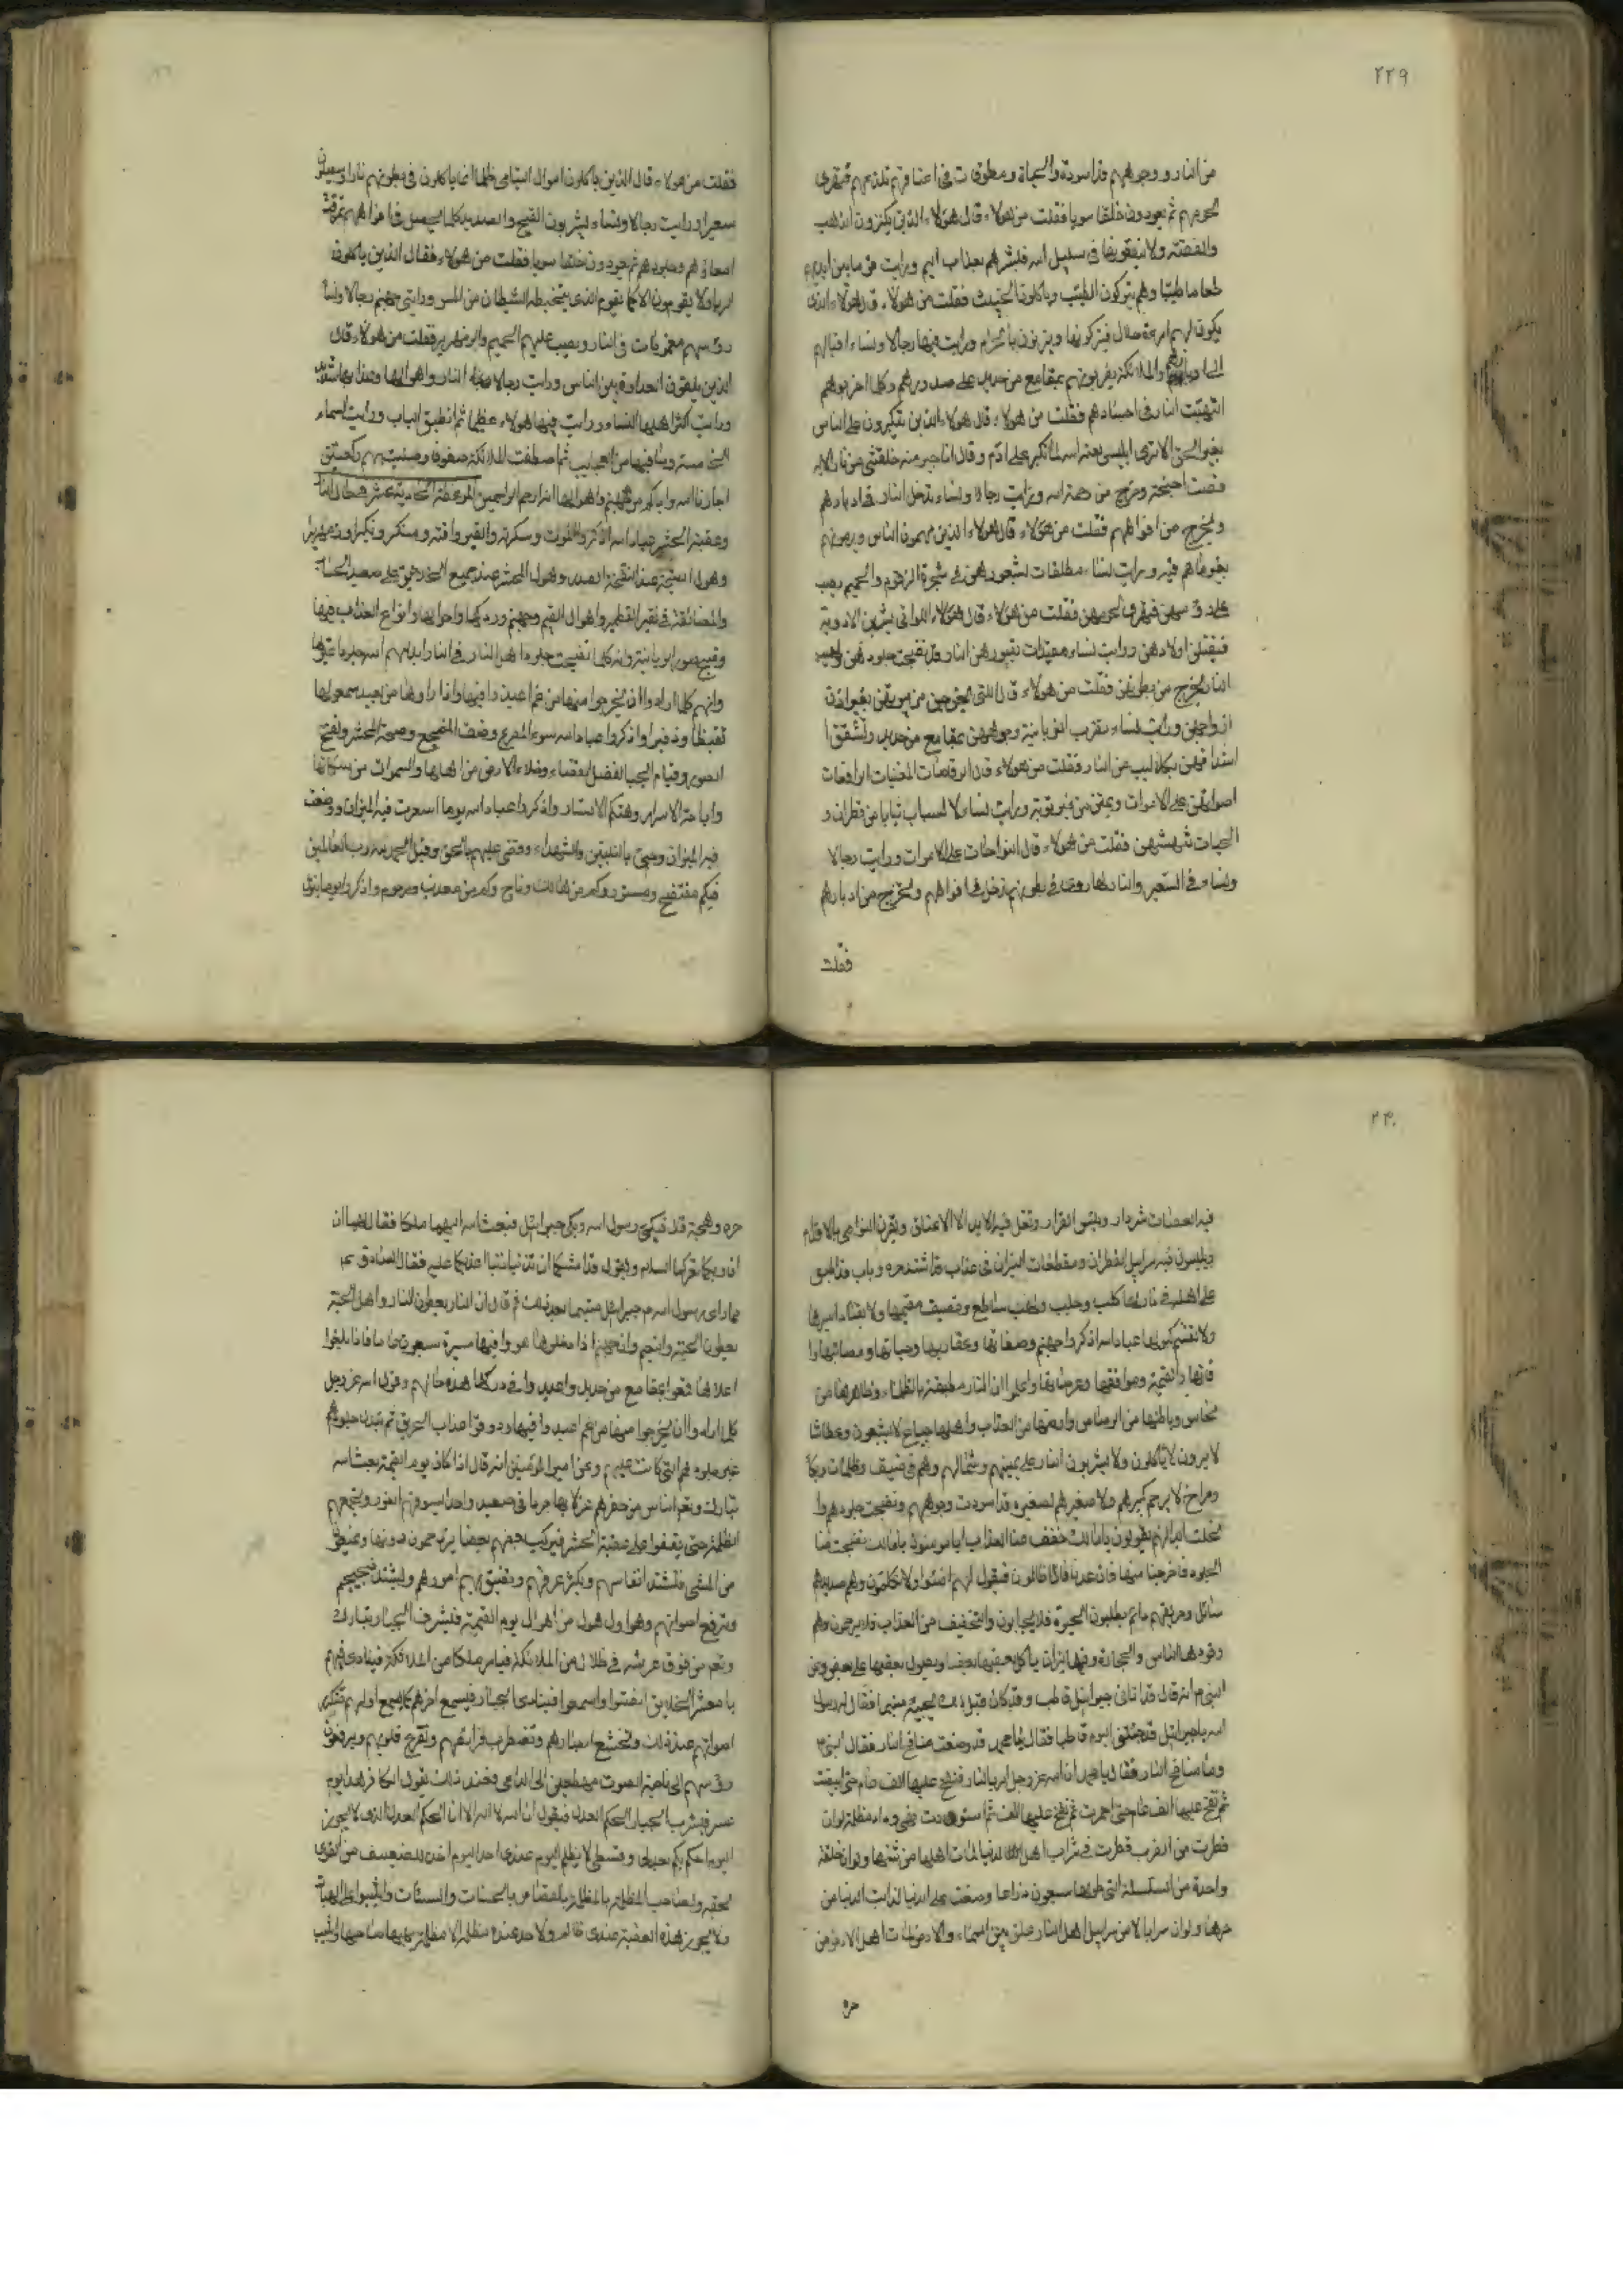 ٢٢٩
من النار ووجوههم قد اسودة والحياة ومطوقات في اعناقهم تلذعهم فتهرى
لحومهم ثم يعودون خلقا سويا فقلت من هولاء قال هولاء الذين يكنزون الذهب
والفضة ولا ينفقونها في سبيل الله فبشرهم بعذاب اليم ورايت من ما بين ايديهم
طعاما طيبا وهم يتركون الطيب وياكلون الخبيث فقلت من هولاء قال هولاء الذي
يكون لهم امرءة حلال فيتركونها ويزنون بالحرام ورايت فيها رجالا ونساء اقبالهم
الى ادبارهم والملائكة يضربونهم بمقامع من حديد على صدورهم وكلما ضربوهم
التهبت النار في اجسادهم فقلت من هولاء قال هولاء الذين تكبرون على الناس
بغير الحق الا ترى ابليس لعنه الله لما تكبر على ادم وقال انا خير منه خلقتني من نار
فصت اجنحته وخرج من رحمة الله ورايت رجالا ونساء تدخل النار في ادبارهم
وتخرج من افواههم فقلت من هولاء قال هولاء الذين يهمزون الناس ويرمونهم
بغير ما هم فيه ورايت نساء مطلقات لشعورهن في شجرة الزقوم والحميم يصب
على رؤسهن فيهرى لحومهن فقلت من هولاء قال هولاء اللواتي يشربن الادوية
فيقتلن اولادهن ورايت نساء مقيدات بقيود من النار
النار تخرج من بطونهن فقلت من هولاء قال اللتي يخرجن من بيوتهن بغير اذن
ازواجهن ورايت نساء تضرب الزبانية وجوههن بمقامع من حديد وتشقق
اشداقهن بكلاليب من النار فقلت من هولاء قال الرقاصات المغنيات الرافعات
اصواتهن على الاموات ويمتن من غير توبة ورايت نساء ثيابا من قطران و
الحيات تنهشهن فقلت من هولاء قال النواحات على الاموات ورايت رجالا
ونساء في السعير والنار في بطونهم تدخل في افواههم وتخرج من ادبارهم
فقلت
فقلت من هولاء قال الذين ياكلون اموال اليتامى ظلما انما ياكلون في بطونهم نارا وسيصلون
سعيرا ورايت رجالا ونساء يشربون القيح والصديد كلما يحصل في افواههم تمزقت
امعاؤهم وجلودهم ثم يعودون خلقا سويا فقلت من هولاء فقال الذين ياكلون
الربا ولا يقومون الا كما يقوم الذي يتخبطه الشيطان من المس ورايت في جهنم رجالا ونساء
رؤسهم في النار ويصب عليهم الحميم والزمهرير فقلت من هولاء قال
الذين يلقون العداوة بين الناس ورايت رجالا النار واهوالها وعذابها شديد
ورايت اكثر اهلها النساء ورايت فيها هولاء عظيما ثم انطبق الباب ورايت السماء
الخامسة وما فيها من العجايب ثم اصطفت الملائكة صفوفا وصليت بهم ركعتين
اجارنا الله واياكم من جهنم واهوالها انه ارحم الراحمين الموعظة الحادية عشر
وعقبة الحشر عباد الله اذكروا الموت وسكرته والقبر وافته ومنكر ونكيرا
وهول الصيحة عند النفخة الصدد وهول المحشر عند جميع الخلائق على صعيد
والمضائقة في نقير القطمير واهوال القيمة وجهنم ودركها واحوالها وانواع العذاب فيها
وقبيح صور الزبانية وانه كلما نضجت جلود اهل النار في النار ابدلهم الله جلودا غيرها
وانهم كلما ارادوا ان يخرجوا منها من غم اعيدوا فيها واذا راوها من بعيد سمعوا لها
تغيظا وزفيرا واذكروا عباد الله سوء المفزع وضعف المضجع وصيحة الحشر ونفخ
الصور وقيام الجبا لفصل القضاء وخلاء الارض من اهلها والسموات من سكانها
واباحة الاسرار وهتك الاستار واذكروا عباد الله يوما اسعرت فيه النيران ووضعت
فيه الميزان وجئ بالنبيين والشهداء وقضى عليهم بالحق وقيل الحمد لله رب العالمين
فيكم مفتضح ومستور وكم من هالك وناج وكم من معذب ومرحوم واذكروا يوما
٢٣٠
فيه العصاة شر دار وبئس القرار وتغل فيه الايدي الى الاعناق وتقرن النواصي بالاقدام
ويلبسون فيه سرابيل القطران ومقطعات النيران في عذاب قد اشتد حره وباب قد اطبق
على اهله في نار لها كلب وجلب ولهب ساطع وقصيف مقيمها ولا يفادى اسيرها
ولا تفصم كبولها عباد الله اذكروا جهنم وصفاتها وعقاربها وحياتها ومصائبها
وموافقها واعلموا ان النار مطبقة بالظلماء وظاهرها من
نحاس وباطنها من الرصاص وارضها من العذاب واهلها جياع لا يشبعون وعطاشا
لا يروون لا ياكلون ولا يشربون النار على يمينهم وشمالهم وهم في ضيق وظلمات وبكاء
وصراخ لا يرحم كبيرهم ولا صغيرهم لصغيره قد اسودت وجوههم ونضجت جلودهم
نحلت ابدانهم يقولون يا مالك خفف عنا العذاب يا مالك نضجت منا
الجلود فاخرجنا منها فان عدنا فانا ظالمون فيقول لهم اخسئوا ولا تكلمون وهم صديدهم
سائل وحريقهم دائم يطلبون الجيرة فلا يجابون والتخفيف من العذاب فلا يرحمون وهم
وقودها الناس والحجارة وفيها نيران ياكل بعضها بعضا ويصول بعضها على بعض وعن
النبي ص انه قال قد اتاني جبرائيل قاطب وقد كان قبل ذلك يجيئني مبتسما فقال له رسول
الله يا جبرائيل قد جئتني اليوم قاطبا فقال يا محمد قد وضعت منافخ النار فقال النبي ص
وما منافخ النار فقال يا محمد ان الله عز وجل امر بالنار فنفخ عليها الف عام حتى ابيضت
ثم نفخ عليها الف عام حتى احمرت ثم نفخ عليها الف ثم اسودت فهي سوداء مظلمة لو ان
قطرت من الضريع قطرت في شراب اهل الدنيا لمات اهلها من نتنها ولو ان حلقة
واحدة من السلسلة التي طولها سبعون ذراعا وضعت على الدنيا لذابت الدنيا من
حرها ولو ان سربالا من سرابيل اهل النار علق بين السماء والارض لمات اهل الارض من
حره
حره وهجه قال فبكى رسول الله وبكى جبرائيل فبعث الله اليهما ملكا فقال لهما ان
ان ربكما يقرئكما السلام ويقول قد امنتكما ان تذنبا ذنبا اعذبكما عليه فقال الصادق ع
فما راى رسول الله ص جبرائيل مبتسما بعد ذلك ثم قال ان النار يعطون النار واهل الجنة
يعطون الجنة والنعيم وان جهنم اذا دخلوها هووا فيها مسيرة سبعون عاما فاذا بلغوا
اعلاها قمعوا بمقامع من حديد واعيدوا في دركها هذه حالهم وقول الله عز وجل
كلما ارادوا ان يخرجوا منها من غم اعيدوا فيها وذوقوا عذاب الحريق ثم تبدل جلودهم
غير جلودهم التي كانت عليهم وعن امير المؤمنين انه قال اذا كان يوم القيمة يبعث الله
تبارك وتعالى الناس من حفرهم عزلا بهما جردا في صعيد واحد يسوقهم النور ويجمعهم
الظلمة حتى يقفوا على عقبة الحشر فيركب بعضهم بعضا يزدحمون دونها ويمنعون
من المضى فتشتد انفاسهم ويكثر عرقهم وتضيق بهم امورهم ويشتد ضجيجهم
وترفع اصواتهم وهو اول هول من اهوال يوم القيمة فيشرف الجبار تبارك
وتعالى من فوق عرشه في ظلال من الملائكة فيامر ملكا من الملائكة فينادي فيهم
يا معشر الخلائق انصتوا واسمعوا فينادي الجبار فيسمع اخرهم كما يسمع اولهم فتنكسر
اصواتهم عند ذلك وتخشع ابصارهم وتضطرب فرائصهم وتفزع قلوبهم ويرفعون
رؤسهم الى ناحية الصوت مهطعين الى الداعي وعند ذلك يقول الكافر هذا يوم
عسر فيشرف الجبار الحكم العدل فيقول ان الله لا اله الا انا الحكم العدل الذي لا يجور
اليوم احكم بكم بعدلي وقسطي لا يظلم اليوم عندي احد اليوم اخذ للضعيف من القوى
بحقه ولصاحب المظلمة بالمظلمة بالقصاص بالحسنات والسيئات واثيب على الهبات
ولا يجوز هذه العقبة عندي ظالم ولا احد عنده مظلمة الا مظلمة يهبها صاحبها واثيب